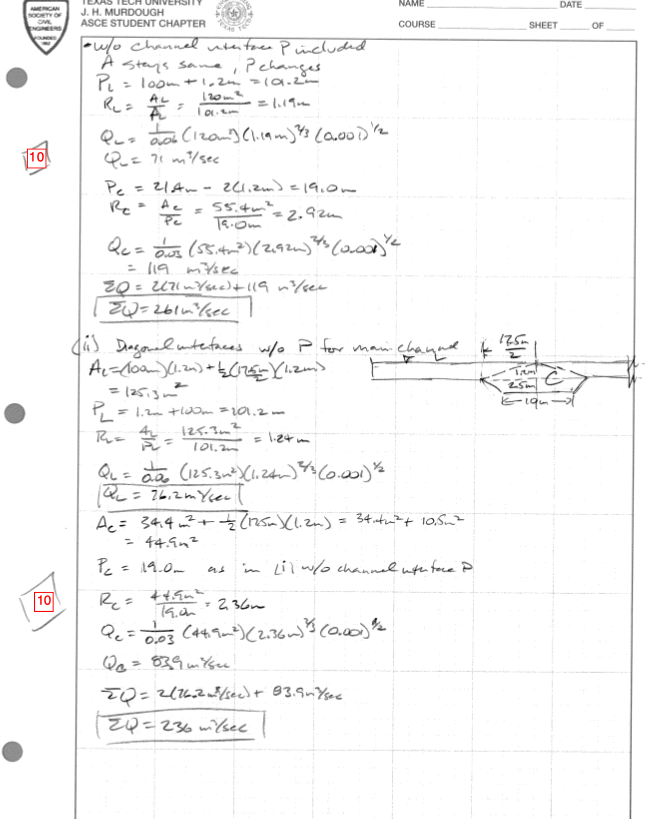 TEXAS TECH UNIVERSITY
J. H. MURDOUGH
ASCE STUDENT CHAPTER
AMERICAN
SOCIETY OF
CIVIL
ENGINEERS
FOUNDED
1852
NAME
DATE
COURSE
SHEET
OF
• w/o channel interface P included
A stays same, P changes
P_L = 100m + 1.2m = 101.2m
R_L = A_L/P_L = 120m²/101.2m = 1.19m
Q_L = 1/0.06 (120m²)(1.19m)^2/3 (0.001)^1/2
Q_L = 71 m³/sec
10
P_C = 21.4m - 2(1.2m) = 19.0m
R_C = A_C/P_C = 55.4m²/19.0m = 2.92m
Q_C = 1/0.03 (55.4m²)(2.92m)^2/3 (0.001)^1/2
= 119 m³/sec
ΣQ = 2(71m³/sec) + 119 m³/sec
ΣQ = 261m³/sec
(ii) Diagonal interfaces w/o P for main channel
17.5m/2
A_L = (100m)(1.2m) + ½(17.5m/2)(1.2m)
= 125.3m²
1.2m
2.5m
C
19m
P_L = 1.2m + 100m = 101.2m
R_L = A_L/P_L = 125.3m²/101.2m = 1.24m
Q_L = 1/0.06 (125.3m²)(1.24m)^2/3 (0.001)^1/2
Q_L = 76.2m³/sec
A_C = 34.4m² + ½(17.5m)(1.2m) = 34.4m² + 10.5m²
= 44.9m²
P_C = 19.0m as in (i) w/o channel interface P
10
R_C = 44.9m²/19.0m = 2.36m
Q_C = 1/0.03 (44.9m²)(2.36m)^2/3 (0.001)^1/2
Q_C = 83.9m³/sec
ΣQ = 2(76.2m³/sec) + 83.9m³/sec
ΣQ = 236 m³/sec